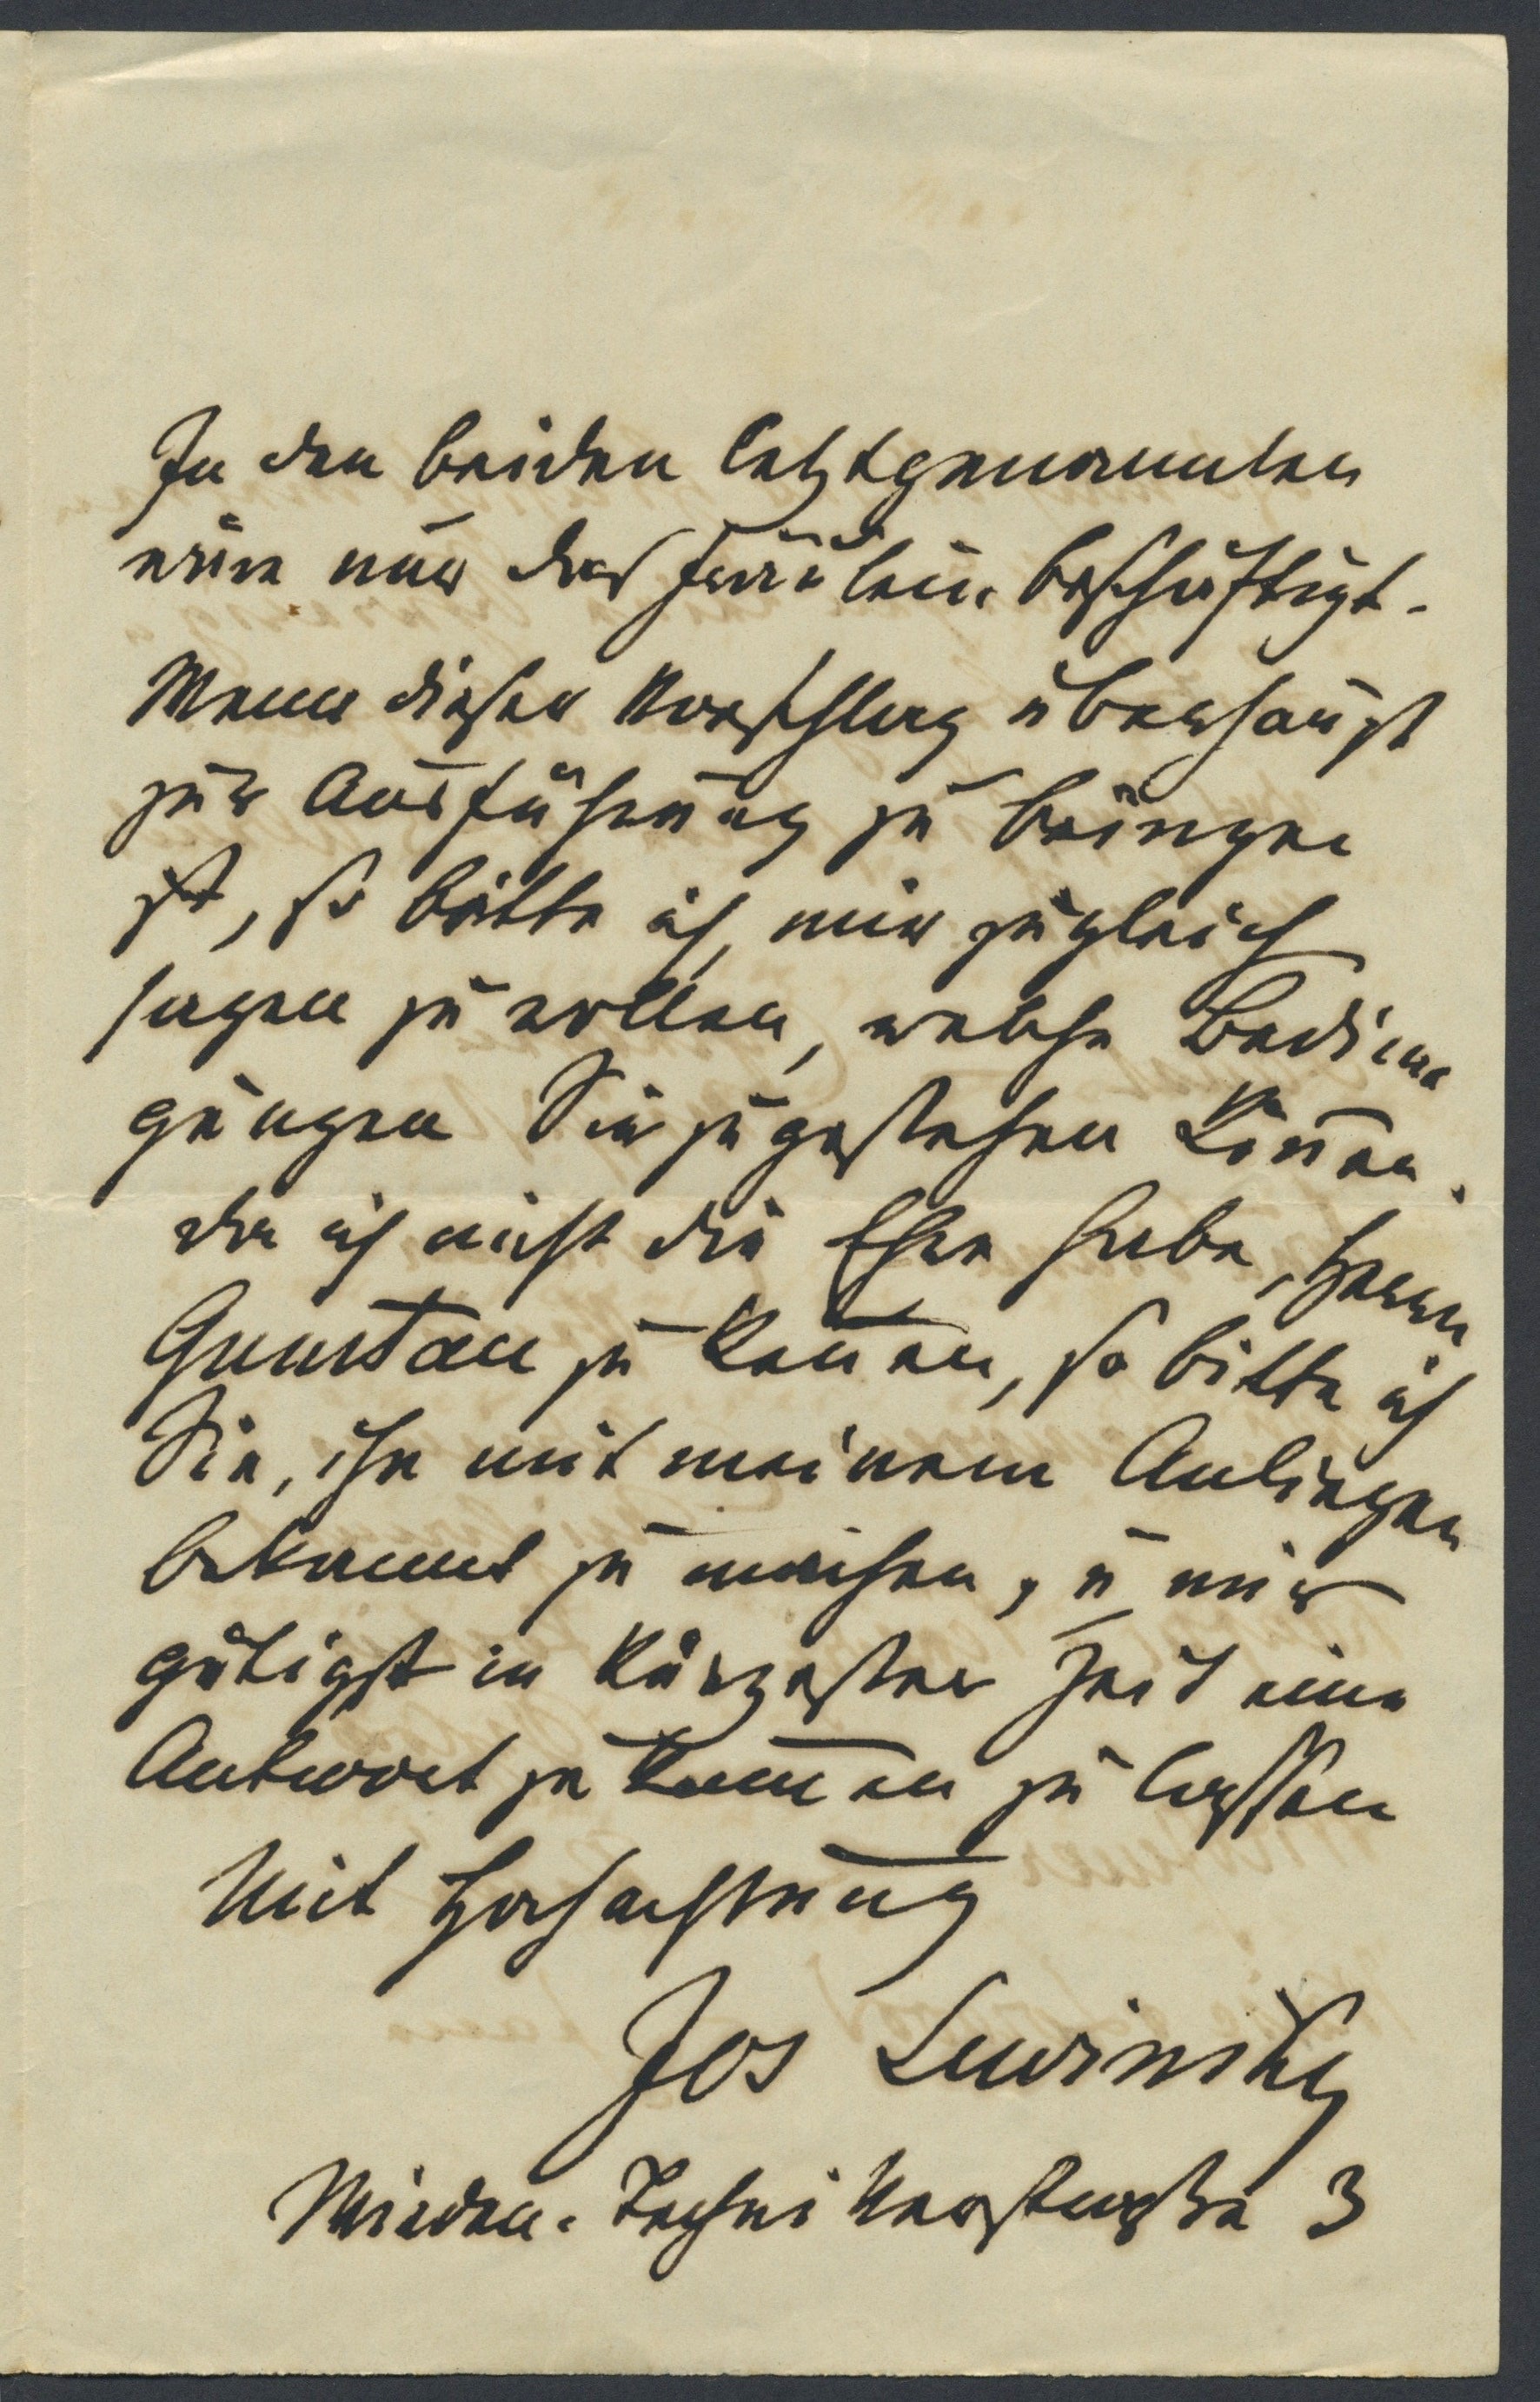 In den beiden letztgenannten
wäre nur das Fräulein beschäftigt.
Wenn dieser Vorschlag überhaupt
zur Ausführung zu bringen
ist, so bitte ich, mir zugleich
sagen zu wollen, welche Bedin
gungen Sie zugestehen kön̅en.
da ich nicht die Ehre habe, Herrn
zu ken̅en, so bitte ich
Sie, ihn mit meinem Anliegen
bekannt zu machen, u mir
gütigst in kürzester Zeit eine
Antwort zu kom̅en zu lassen
Mit Hochachtung
Jos Lewinsky
Wieden. Technikerstraße 3